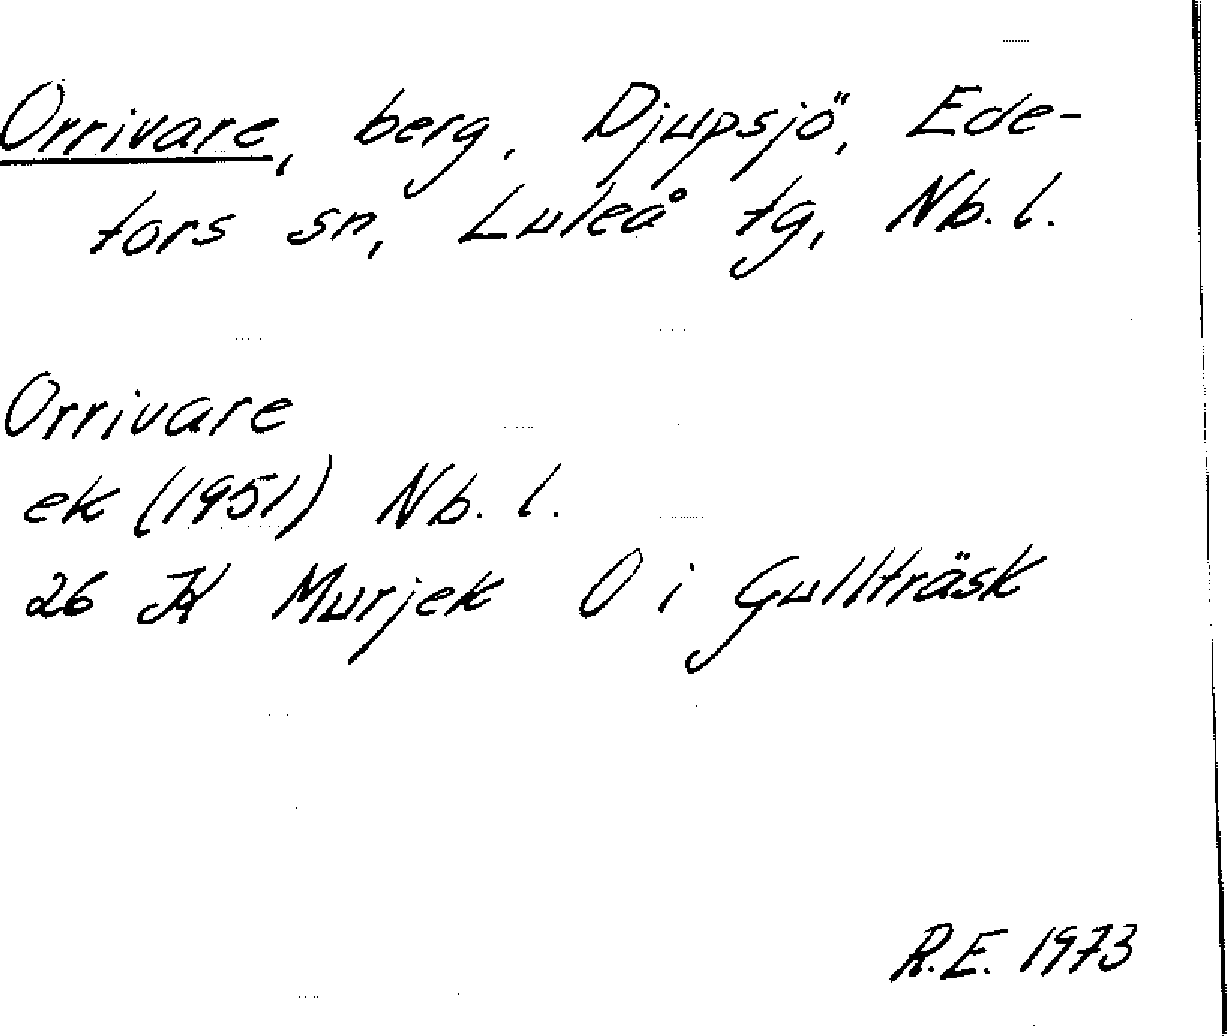 Orrivare, berg, Djupsjö, Ede-
fors sn, Luleå tg, Nb. l.
Orrivare
ek (1951) Nb. l.
26 Murjek O i Gullträsk
R.E. 1973